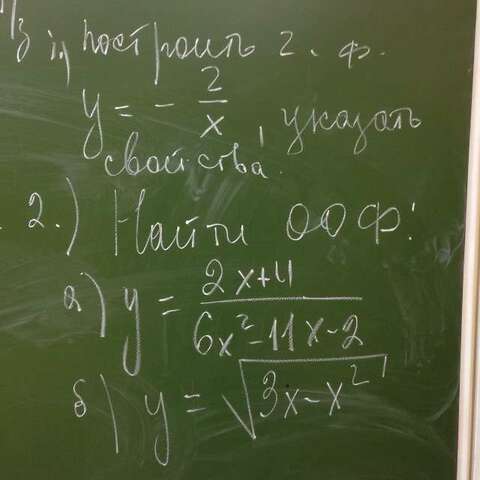 1) Построить г. ф.
y = - 2/x, указать
свойства.
2.) Найти ООФ:
а) y = (2x+4)/(6x²-11x-2)
б) y = √(3x-x²)